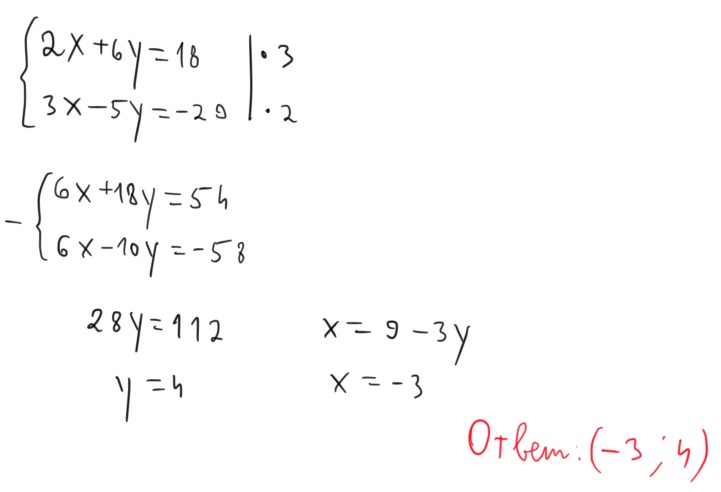 2x+6y=18 | ·3
3x−5y=−29 | ·2
− 6x+18y=54
6x−10y=−58
28y=112 x=9−3y
y=4 x=−3
Ответ: (−3; 4)